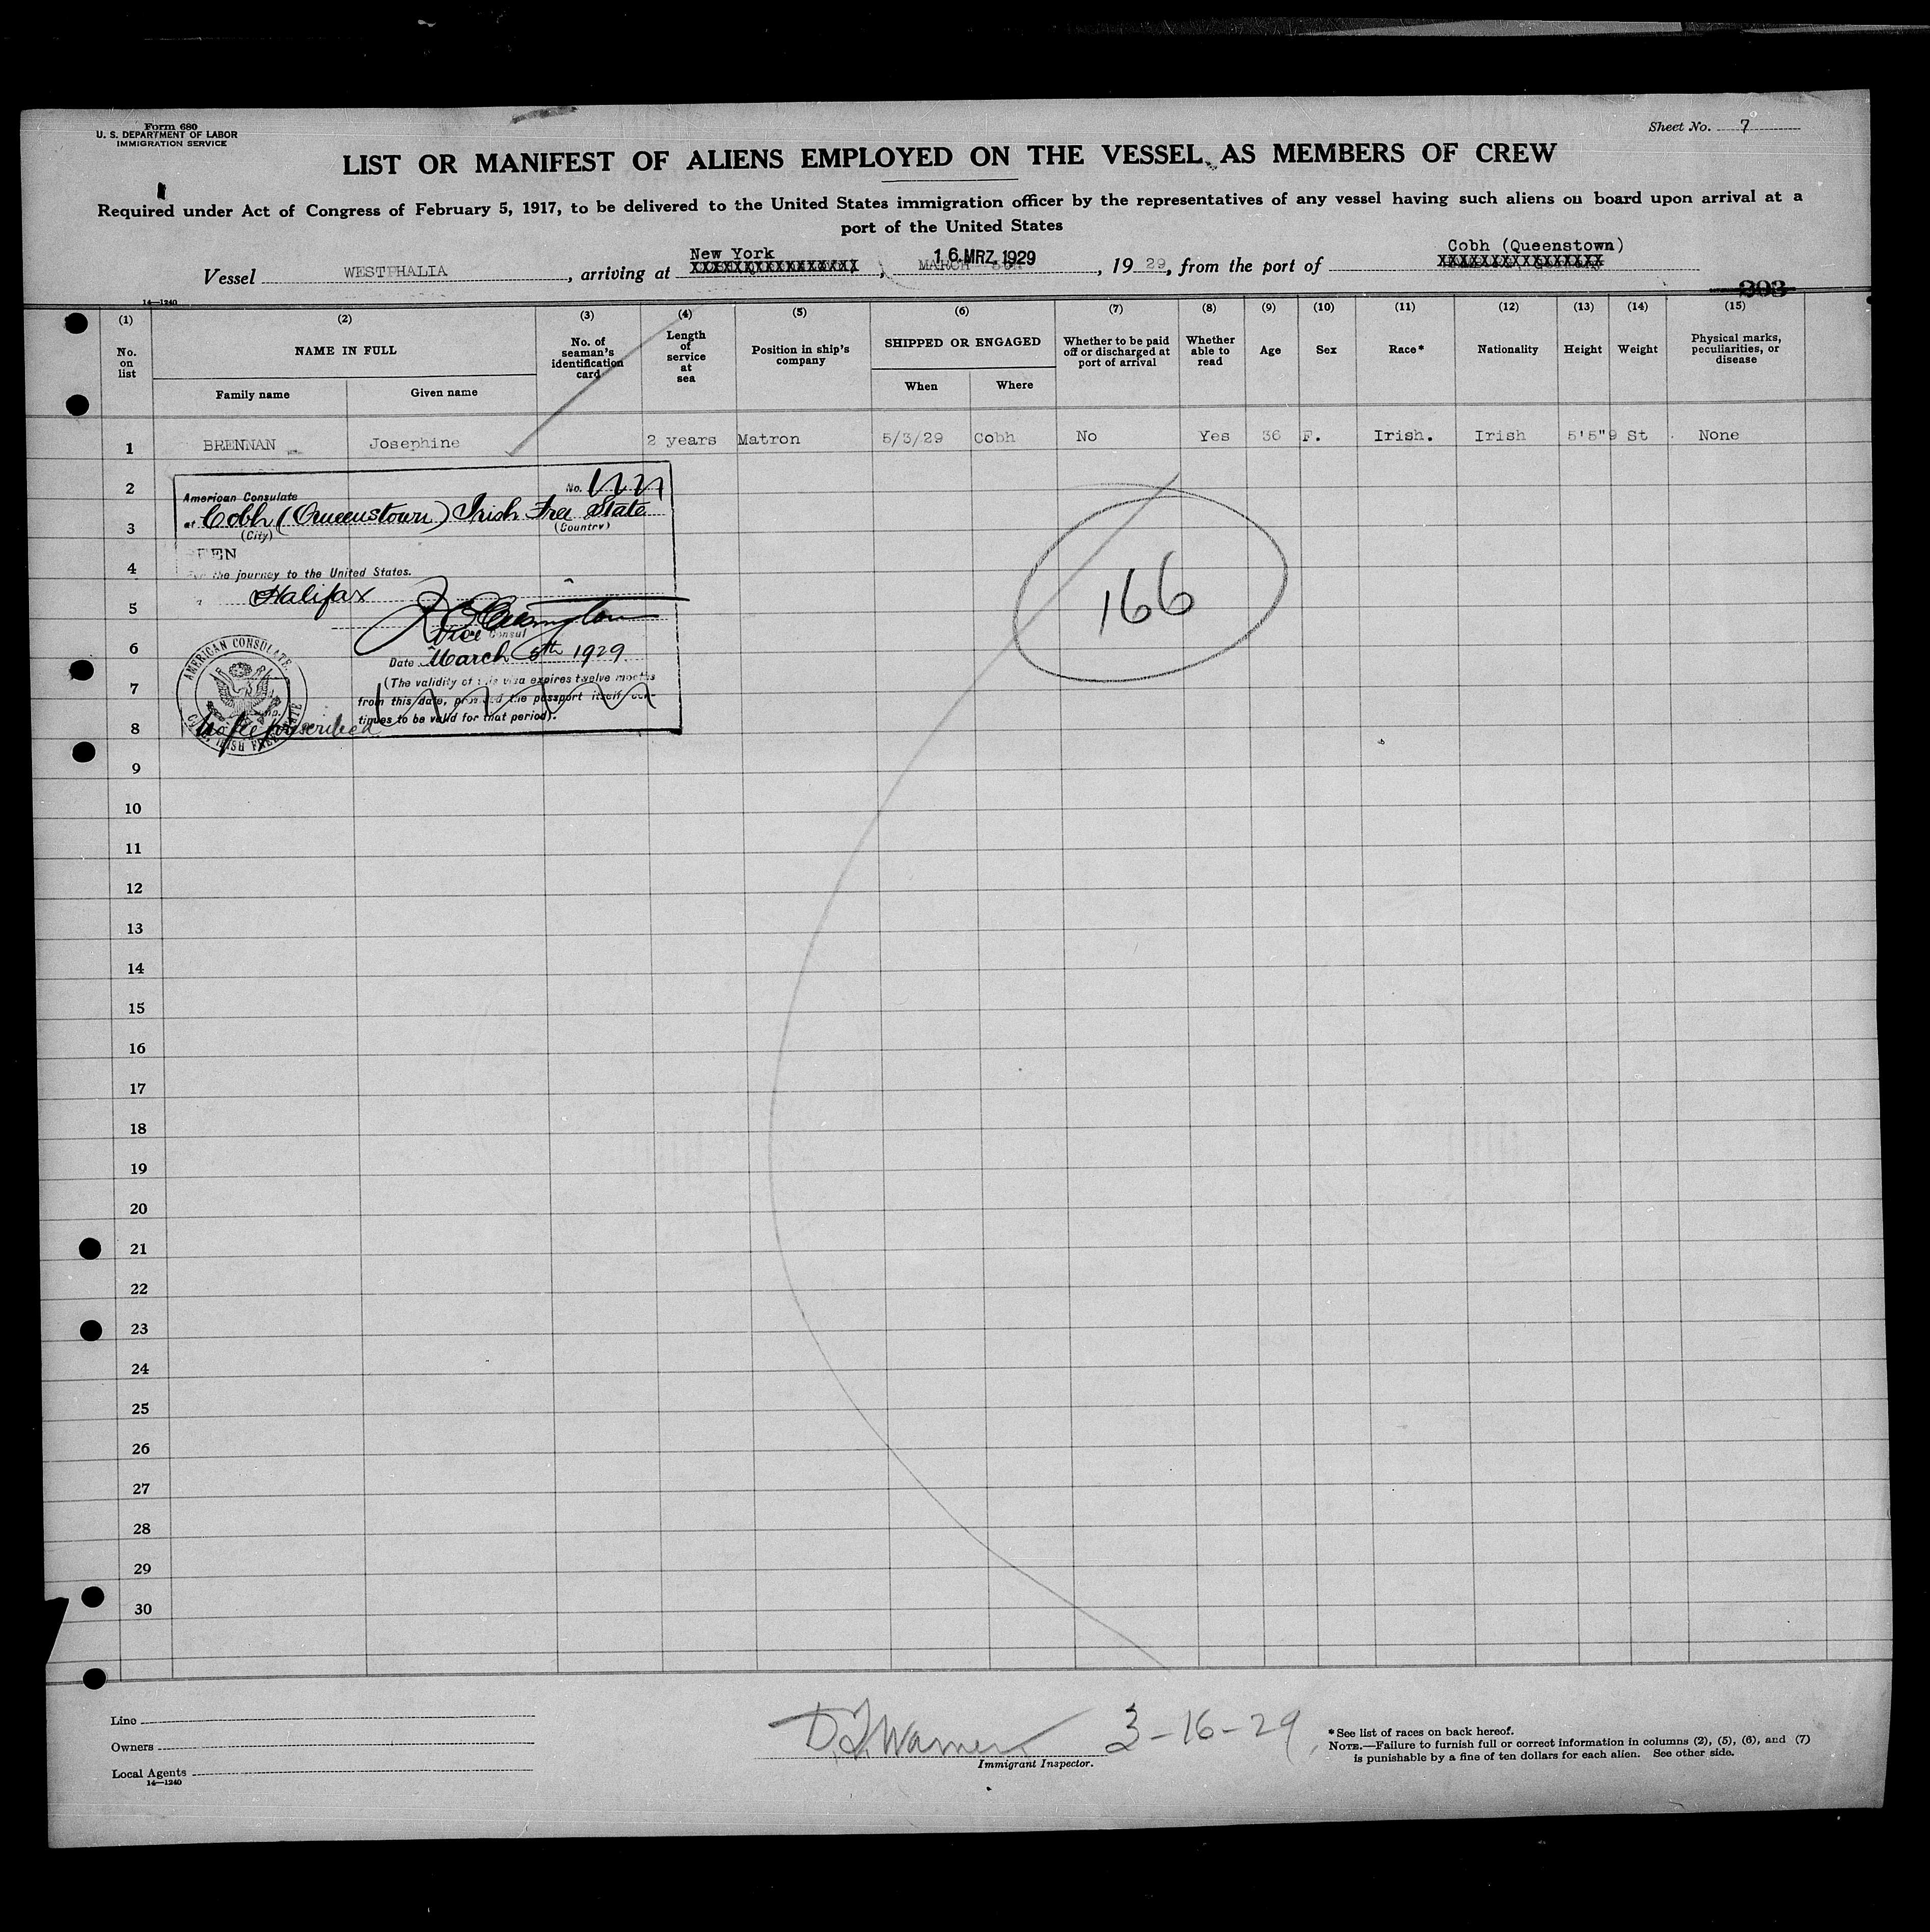 Form 680
U. S. DEPARTMENT OF LABOR
IMMIGRATION SERVICE
Sheet No. 7
LIST OR MANIFEST OF ALIENS EMPLOYED ON THE VESSEL AS MEMBERS OF CREW
Required under Act of Congress of February 5, 1917, to be delivered to the United States immigration officer by the representatives of any vessel having such aliens on board upon arrival at a
port of the United States
Vessel WESTPHALIA, arriving at New York, 16.MRZ.1929, 19 29, from the port of Cobh (Queenstown)
303
14—1240
(1) (2) (3) (4) (5) (6) (7) (8) (9) (10) (11) (12) (13) (14) (15)
No. on list
NAME IN FULL
Family name
Given name
No. of seaman's identification card
Length of service at sea
Position in ship's company
SHIPPED OR ENGAGED
When
Where
Whether to be paid off or discharged at port of arrival
Whether able to read
Age
Sex
Race*
Nationality
Height
Weight
Physical marks, peculiarities, or disease
1 BRENNAN Josephine 2 years Matron 5/3/29 Cobh No Yes 36 F. Irish. Irish 5'5" 9 St None
2
American Consulate No.
3
at Cobh (Queenstown) Irish Free State
(City) (Country)
4
the journey to the United States.
5
Halifax
Vice Consul
6
Date March 5th 1929
7
(The validity of this visa expires twelve months
from this date, provided the passport itself con-
tinues to be valid for that period).
8
AMERICAN CONSULATE
IRISH FREE STATE
No fee prescribed
166
9
10
11
12
13
14
15
16
17
18
19
20
21
22
23
24
25
26
27
28
29
30
Line
Owners
Local Agents
14—1240
D. J. Warner 3-16-29
Immigrant Inspector.
*See list of races on back hereof.
NOTE.—Failure to furnish full or correct information in columns (2), (5), (6), and (7)
is punishable by a fine of ten dollars for each alien. See other side.